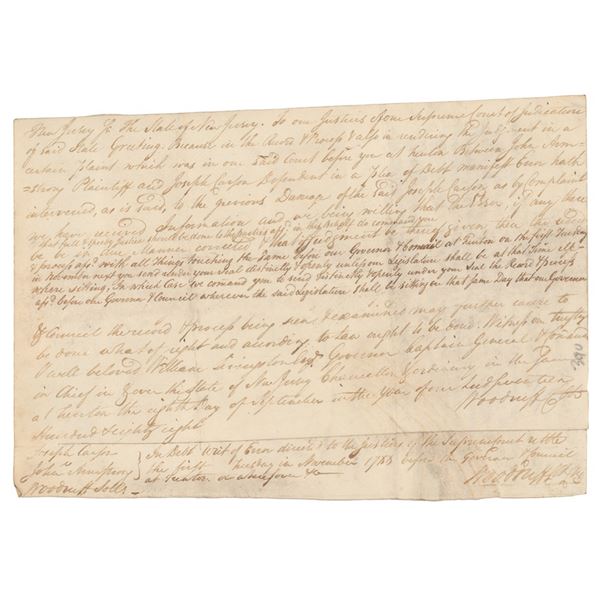 New Jersey Ss The State of New Jersey. To our Justices of our Supreme Court of Judicature
of said State Greeting. Because in the Record & Process & also in rendering the Judgment in a
certain Plaint which was in our said Court before you at Trenton Between John Arm-
=strong Plaintiff and Joseph Carson Defendant in a plea of Debt manifest Error hath
intervened, as is said, to the grevious Damage of the said Joseph Carson, as by Complaint
we have received Information and we being willing that the Error, if any there
be be in due Manner corrected &
that full & speedy Justice should be done to the parties afsd in this behalf do command you
that if Judgment be thereof given then the record
& process afsd with all things touching the same before our Governor & Council at Trenton on the first Tuesday
in November next you send under your Seal distinctly & openly unless our Legislature shall be at that Time else-
where sitting, In which case we comand you to send distinctly & openly under your Seal the Record & process
afsd before our Governor & Council wherever the said Legislature shall be sitting on that same Day that our Governor
& Council the record & process being seen & examined may further cause to
be done what of right and according to Law ought to be done. Witness our trusty
& well beloved William Livingston Esqr Governor Captain General & Comand
in Chief in & over the State of New Jersey Chancellor & ordinary in the same
at Trenton the eighth Day of September in the Year of our Lord Seventeen
Hundred & eighty eight
Woodruff
Joseph Carson
John Armstrong
Woodruff
In Debt Writ of Error directed to the Justices of the Supreme Court returnable
the first Tuesday in November 1788 before the Governor & Council
at Trenton or elsewhere &c
Woodruff